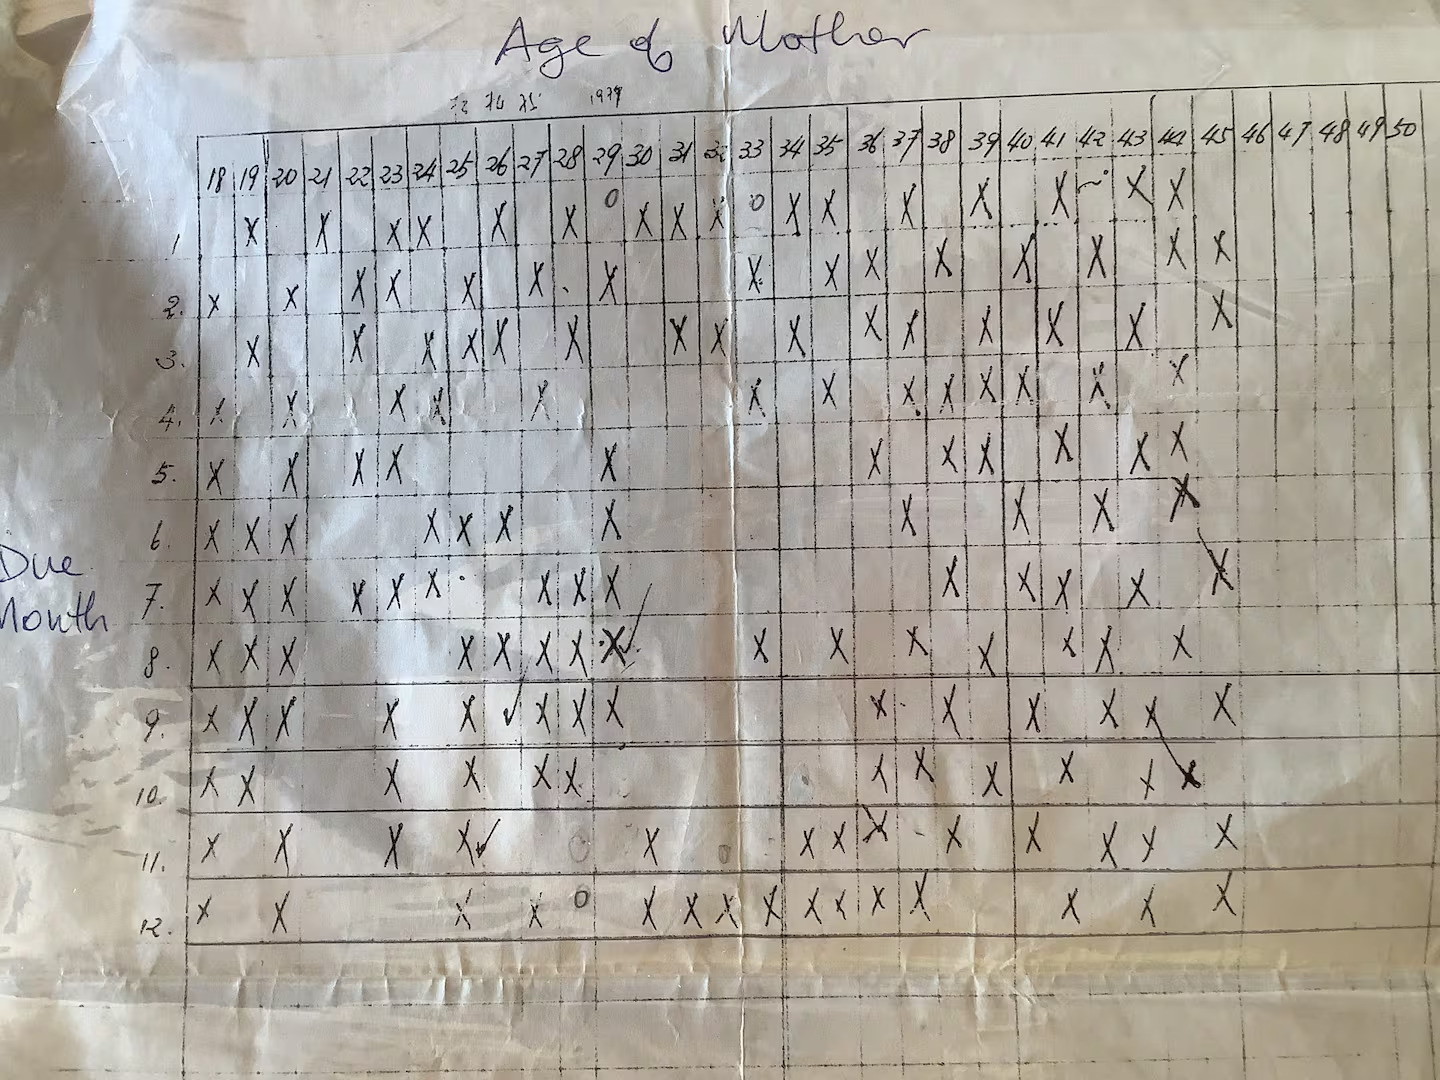 Age of Mother
72 74 75 1979
18 19 20 21 22 23 24 25 26 27 28 29 30 31 32 33 34 35 36 37 38 39 40 41 42 43 44 45 46 47 48 49 50
1 X X X X X X O X X X O X X X X X X X
2. X X X X X X X X X X X X X X X
3. X X X X X X X X X X X X X X X
4. X X X X X X X X X X X X X
5. X X X X X X X X X X X
6. X X X X X X X X X X X
Due
Month
7. X X X X X X X X X X X X X X
8. X X X X X X X X ✓ X X X X X X X
9. X X X X X ✓ X X X X X X X X X
10. X X X X X X X X X X X X
11. X X X X ✓ O X O X X X X X X X X
12. X X X X O X X X X X X X X X X X